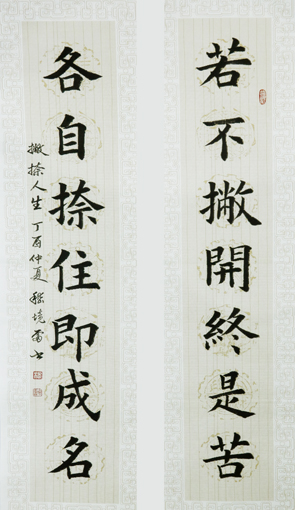 若不撇開終是苦
各自捺住即成名
撇捺人生 丁酉仲夏